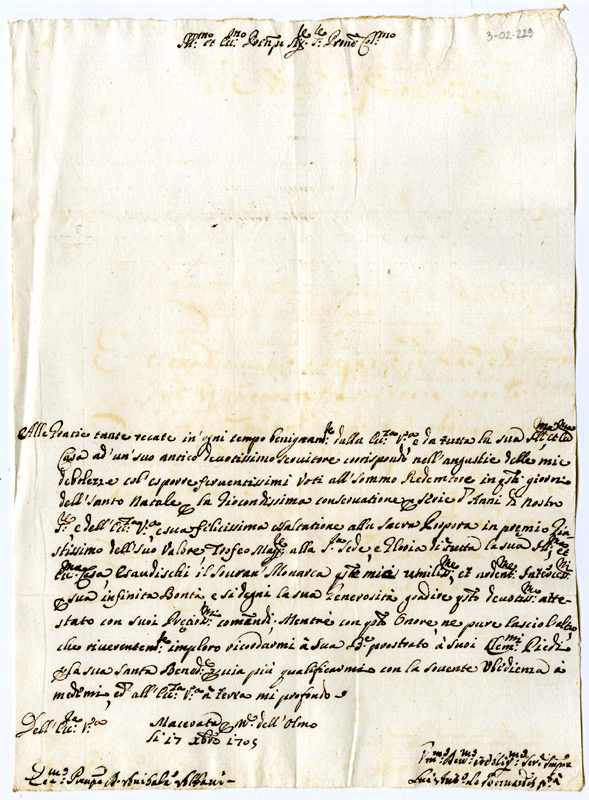 Ill:mo et Ecc:mo Principe Sig:re P:rone Col:mo
3-02-229
Alle Gratie tante recate in ogni tempo benignam:te dalla Ecc:za V:ra e da tutta la sua Ill:ma et Ecc:ma
Casa ad un suo antico devotissimo servitore corrispondo nell'angustie delle mie
debolezze col'esporre ferventissimi voti all'Sommo Redentore in q:sti giorni
dell'Santo Natale p la Giocondissima conservatione e serie d'Anni di Nostro
S:re e dell'Ecc:za V:ra, e sua felicissima esaltatione alla Sacra Porpora in premio Giu
stissimo dell'Suo Valore Trofeo Magg:re alla S:ta Sede, e Gloria di tutta la sua Ill:ma et
Ecc:ma Casa Esaudischi il Souran Monarca q:ste mie umiliss:me et ardent:me Intercess:ni
p sua infinita Bontà e si degni la sua generosità gradire q:sto devotiss:mo atte-
stato con suoi comandi. Mentre con q:sto Onore ne pure lascio
che riverentem:te imploro ricordarmi à Sua prostrato à suoi Clem:mi Piedi
p la sua Santa Bened:ne e via più qualificarmi con la sovente Ubidienza à
medemi, ed all'Ecc:za V:ra à terra mi profondo
Dell'Ecc:za V:ra
Macerata p M: dell'Olmo
li 17 Xbre 1705
Um:mo Dev:mo ed Oblig:mo Ser:
Ecc:mo Prencipe D. Anibale Albani